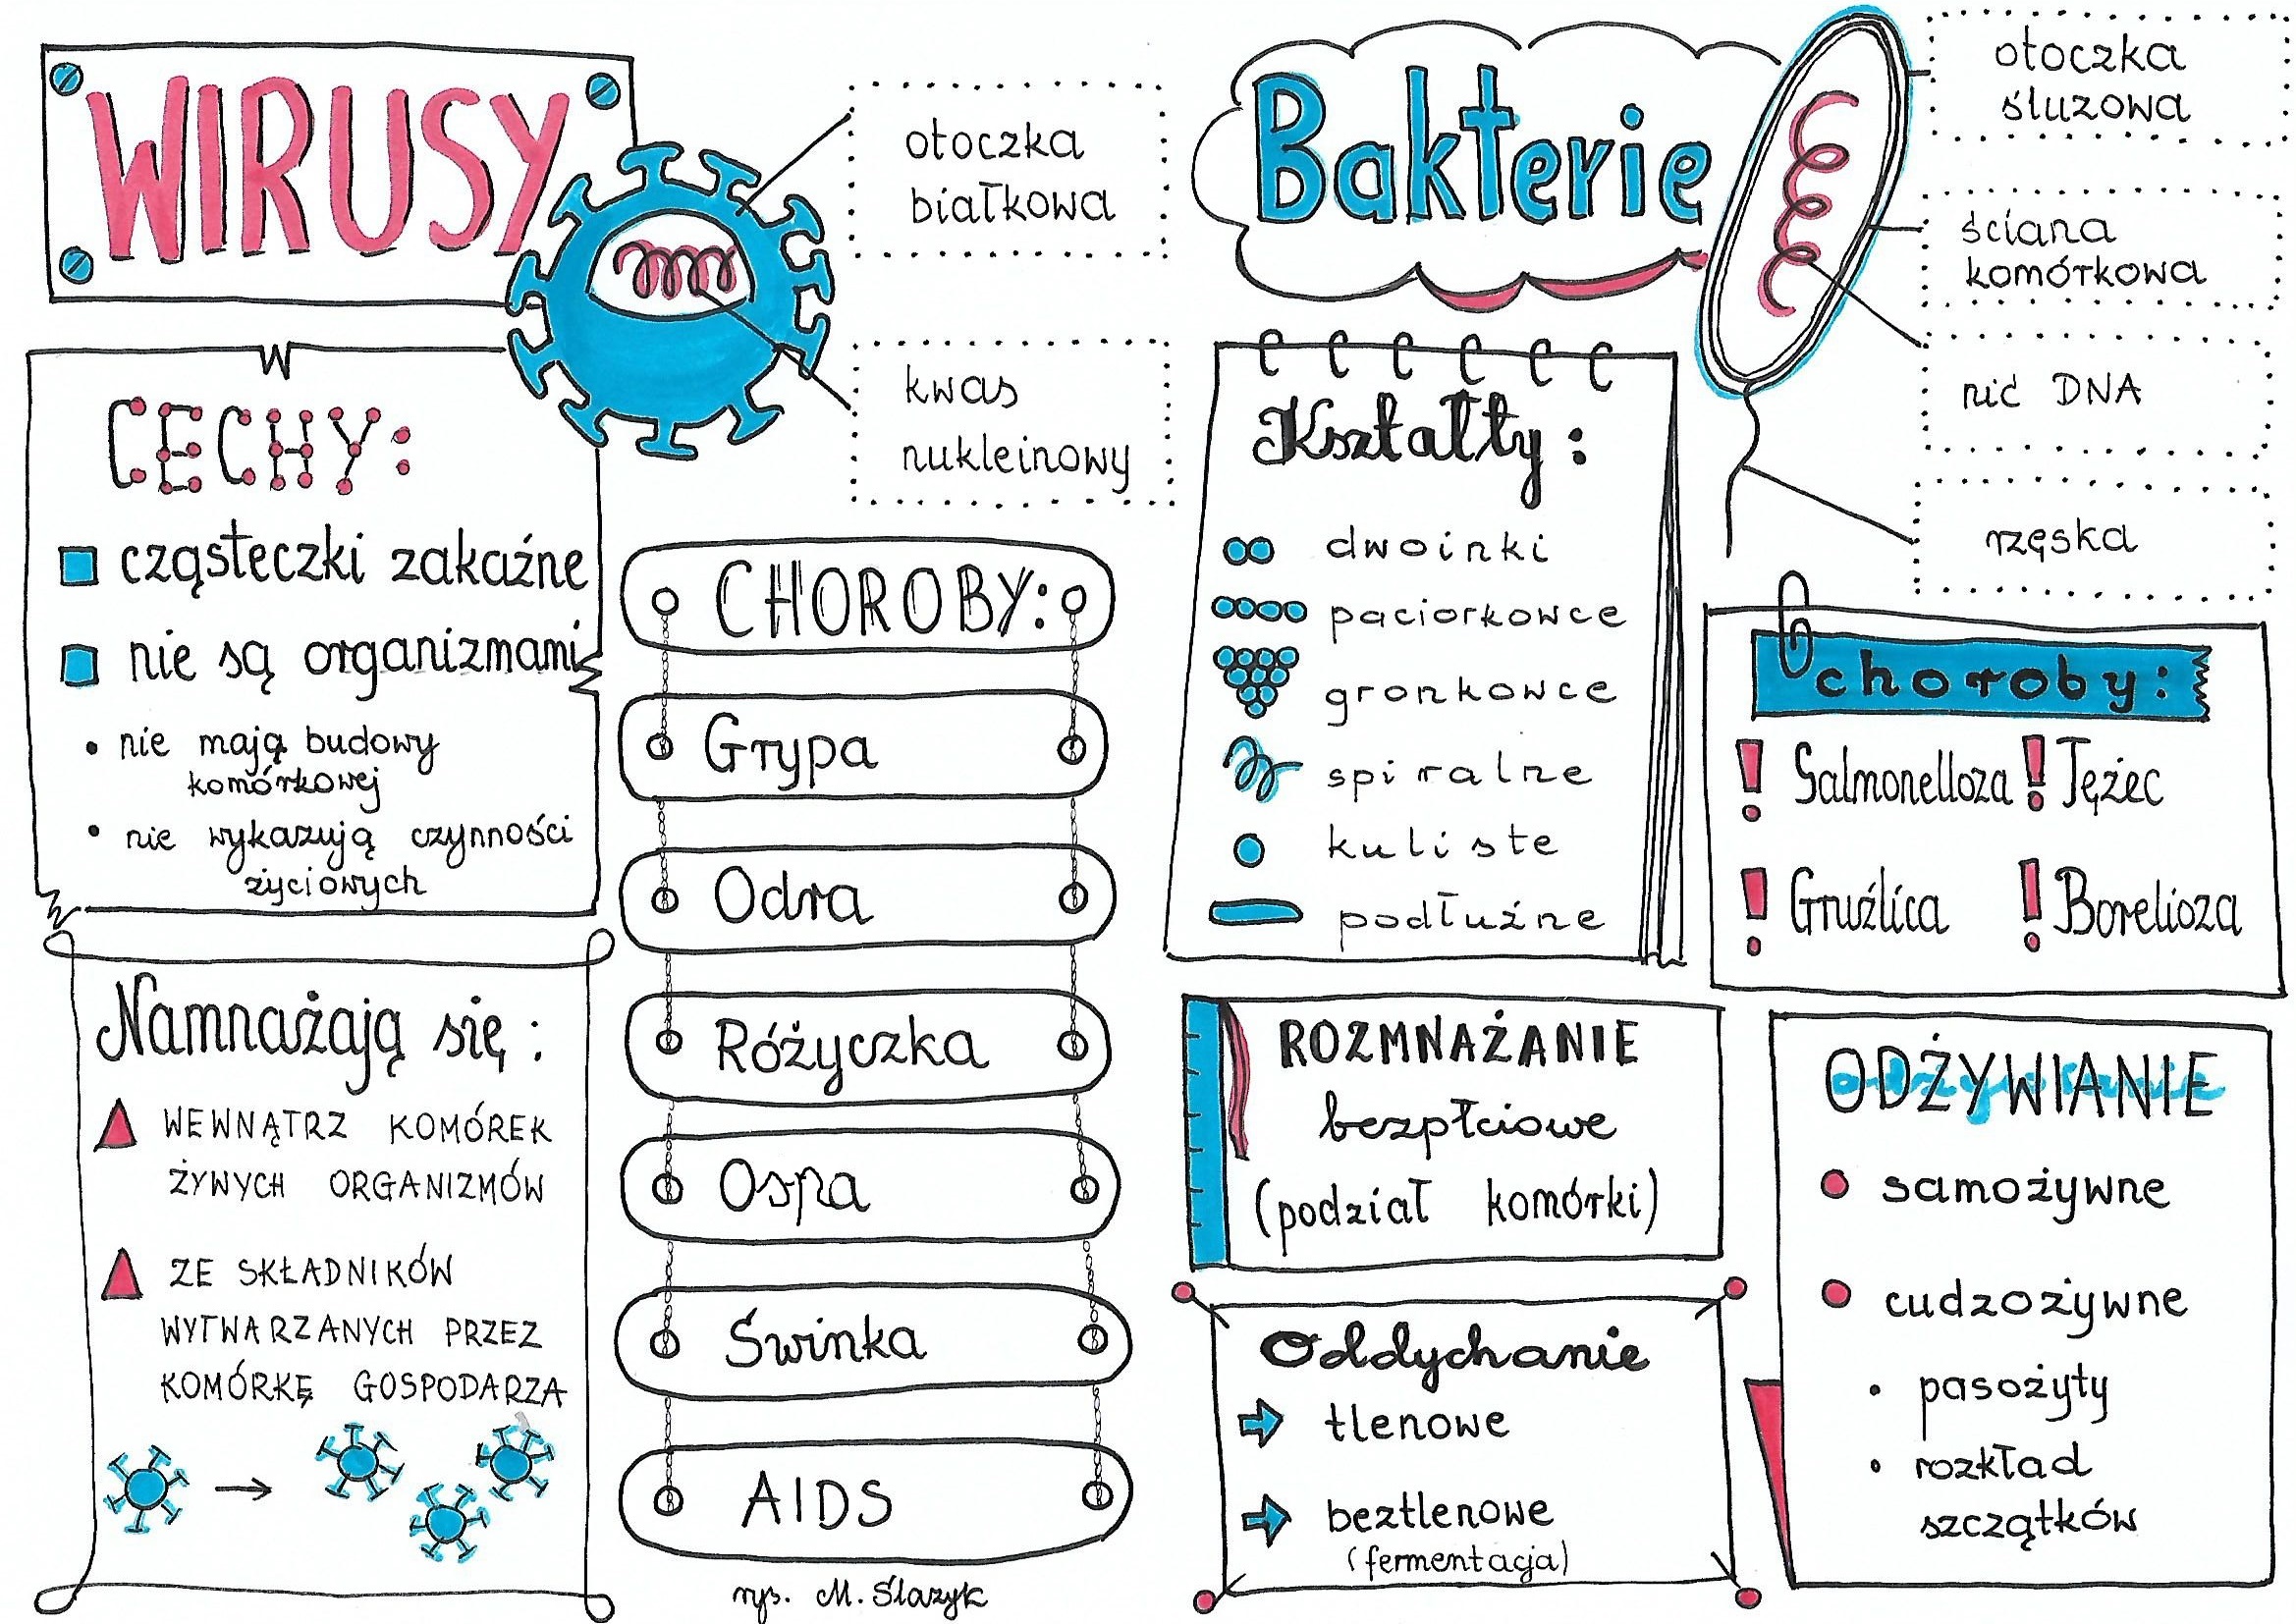 WIRUSY
otoczka
białkowa
kwas
nukleinowy
CECHY:
cząsteczki zakaźne
nie są organizmami
• nie mają budowy
komórkowej
• nie wykazują czynności
życiowych
Namnażają się:
WEWNĄTRZ KOMÓREK
ŻYWYCH ORGANIZMÓW
ZE SKŁADNIKÓW
WYTWARZANYCH PRZEZ
KOMÓRKĘ GOSPODARZA
CHOROBY:
Grypa
Odra
Różyczka
Ospa
Świnka
AIDS
rys. M. Ślazyk
Bakterie
otoczka
śluzowa
ściana
komórkowa
nić DNA
rzęska
Kształty:
dwoinki
paciorkowce
gronkowce
spiralne
kuliste
podłużne
choroby:
! Salmonelloza ! Tężec
! Gruźlica ! Borelioza
ROZMNAŻANIE
bezpłciowe
(podział komórki)
Oddychanie
tlenowe
beztlenowe
(fermentacja)
ODŻYWIANIE
samożywne
cudzożywne
• pasożyty
• rozkład
szczątków